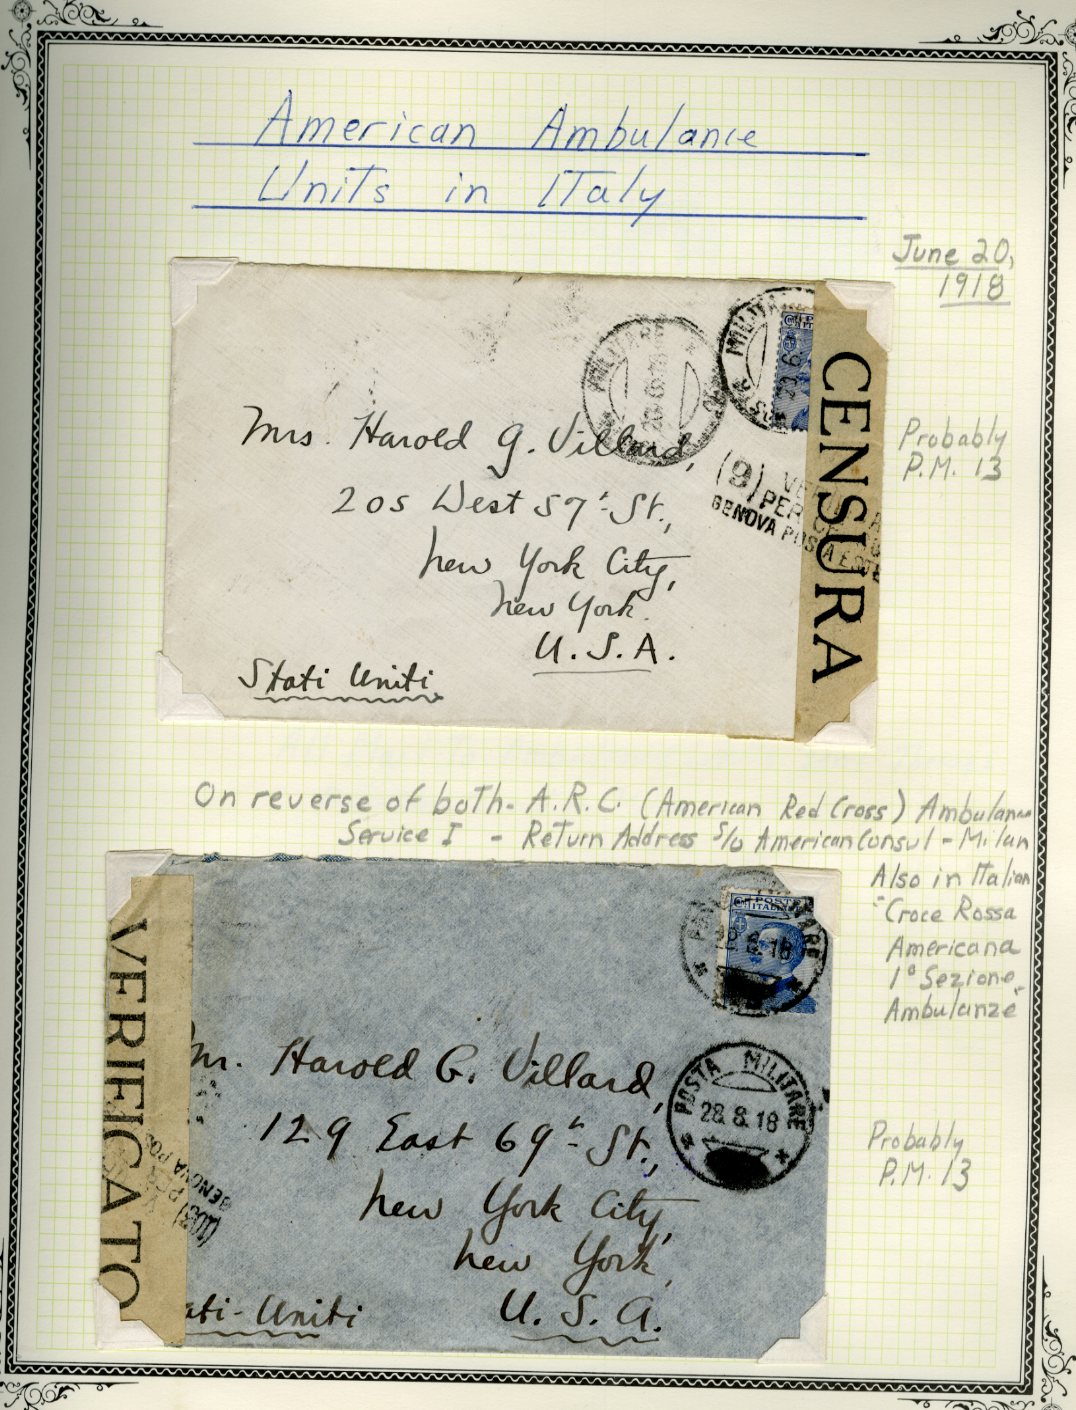 American Ambulance
Units in Italy
June 20,
1918
MILITARE
Probably
P.M. 13
CENSURA
Mrs. Harold G. Villard,
205 West 57th St.,
New York City,
New York.
U.S.A.
Stati Uniti
(9)
PER
GENOVA POSTA ESTE
On reverse of both - A.R.C. (American Red Cross) Ambulance
Service I - Return Address c/o American Consul - Milan
Also in Italian
"Croce Rossa
Americana
1° Sezione
Ambulanze"
POSTE
ITALIANE
8.18
VERIFICATO
Mr. Harold G. Villard,
129 East 69th St.,
New York City,
New York,
U.S.A.
ati-Uniti
POSTA MILITARE
28.8.18
(103)
PER
GENOVA POS
Probably
P.M. 13